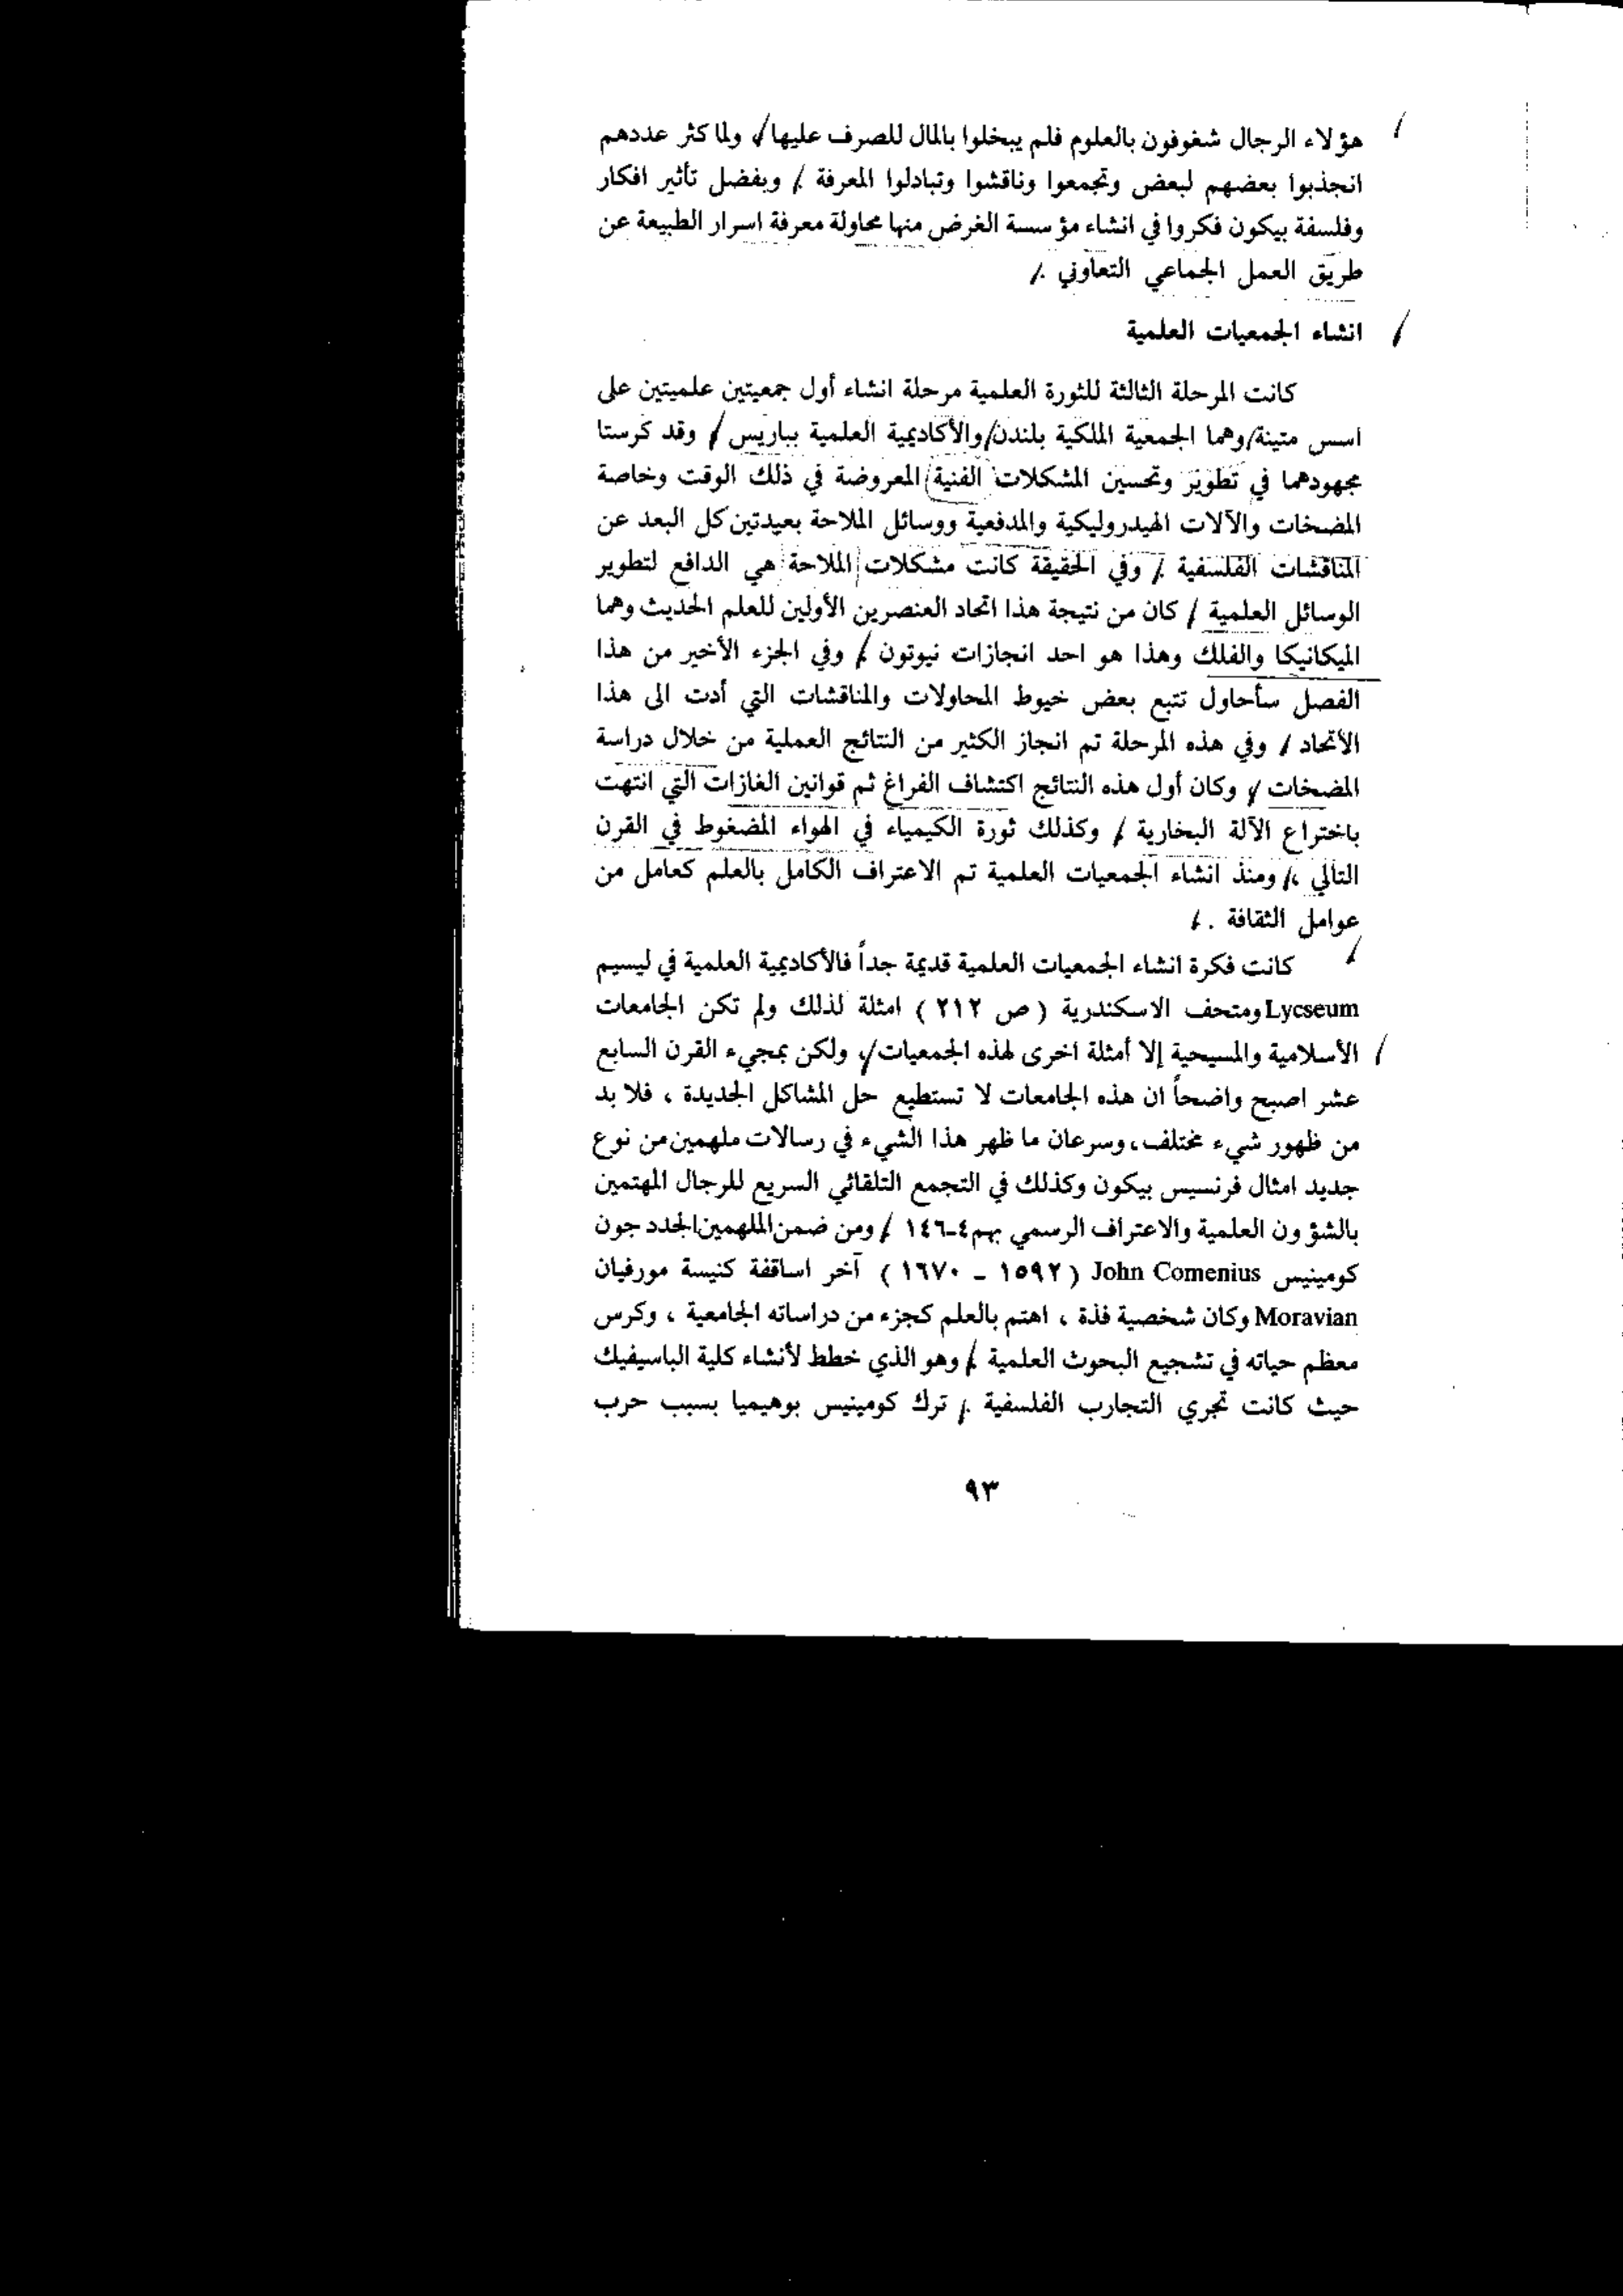 هؤلاء الرجال شغوفون بالعلوم فلم يبخلوا بالمال للصرف عليها، ولما كثر عددهم
انجذبوا بعضهم لبعض وتجمعوا وناقشوا وتبادلوا المعرفة . وبفضل تأثير افكار
وفلسفة بيكون فكروا في انشاء مؤسسة الغرض منها محاولة معرفة اسرار الطبيعة عن
طريق العمل الجماعي التعاوني .
انشاء الجمعيات العلمية
كانت المرحلة الثالثة للثورة العلمية مرحلة انشاء أول جمعيتين علميتين على
اسس متينة وهما الجمعية الملكية بلندن والأكاديمية العلمية بباريس ، وقد كرستا
مجهودهما في تطوير وتحسين المشكلات الفنية المعروضة في ذلك الوقت وخاصة
المضخات والآلات الهيدروليكية والمدفعية ووسائل الملاحة بعيدتين كل البعد عن
المناقشات الفلسفية . وفي الحقيقة كانت مشكلات الملاحة هي الدافع لتطوير
الوسائل العلمية . كان من نتيجة هذا اتحاد العنصرين الأولين للعلم الحديث وهما
الميكانيكا والفلك وهذا هو احد انجازات نيوتون . وفي الجزء الأخير من هذا
الفصل سأحاول تتبع بعض خيوط المحاولات والمناقشات التي أدت الى هذا
الأتحاد . وفي هذه المرحلة تم انجاز الكثير من النتائج العملية من خلال دراسة
المضخات ، وكان أول هذه النتائج اكتشاف الفراغ ثم قوانين الغازات التي انتهت
باختراع الآلة البخارية . وكذلك ثورة الكيمياء في الهواء المضغوط في القرن
التالي ، ومنذ انشاء الجمعيات العلمية تم الاعتراف الكامل بالعلم كعامل من
عوامل الثقافة .
كانت فكرة انشاء الجمعيات العلمية قديمة جداً فالأكاديمية العلمية في ليسيم
Lycseum ومتحف الاسكندرية ( ص ٢١٢ ) امثلة لذلك ولم تكن الجامعات
الأسلامية والمسيحية إلا أمثلة اخرى لهذه الجمعيات ، ولكن بمجيء القرن السابع
عشر اصبح واضحاً ان هذه الجامعات لا تستطيع حل المشاكل الجديدة ، فلا بد
من ظهور شيء مختلف، وسرعان ما ظهر هذا الشيء في رسالات ملهمين من نوع
جديد امثال فرنسيس بيكون وكذلك في التجمع التلقائي السريع للرجال المهتمين
بالشؤون العلمية والاعتراف الرسمي بهم ٤-١٤٦ . ومن ضمن الملهمين الجدد جون
كومينيس John Comenius ( ١٥٩٢ - ١٦٧٠ ) آخر اساقفة كنيسة مورفيان
Moravian وكان شخصية فذة ، اهتم بالعلم كجزء من دراساته الجامعية ، وكرس
معظم حياته في تشجيع البحوث العلمية . وهو الذي خطط لأنشاء كلية الباسيفيك
حيث كانت تجري التجارب الفلسفية . ترك كومينيس بوهيميا بسبب حرب
٩٣